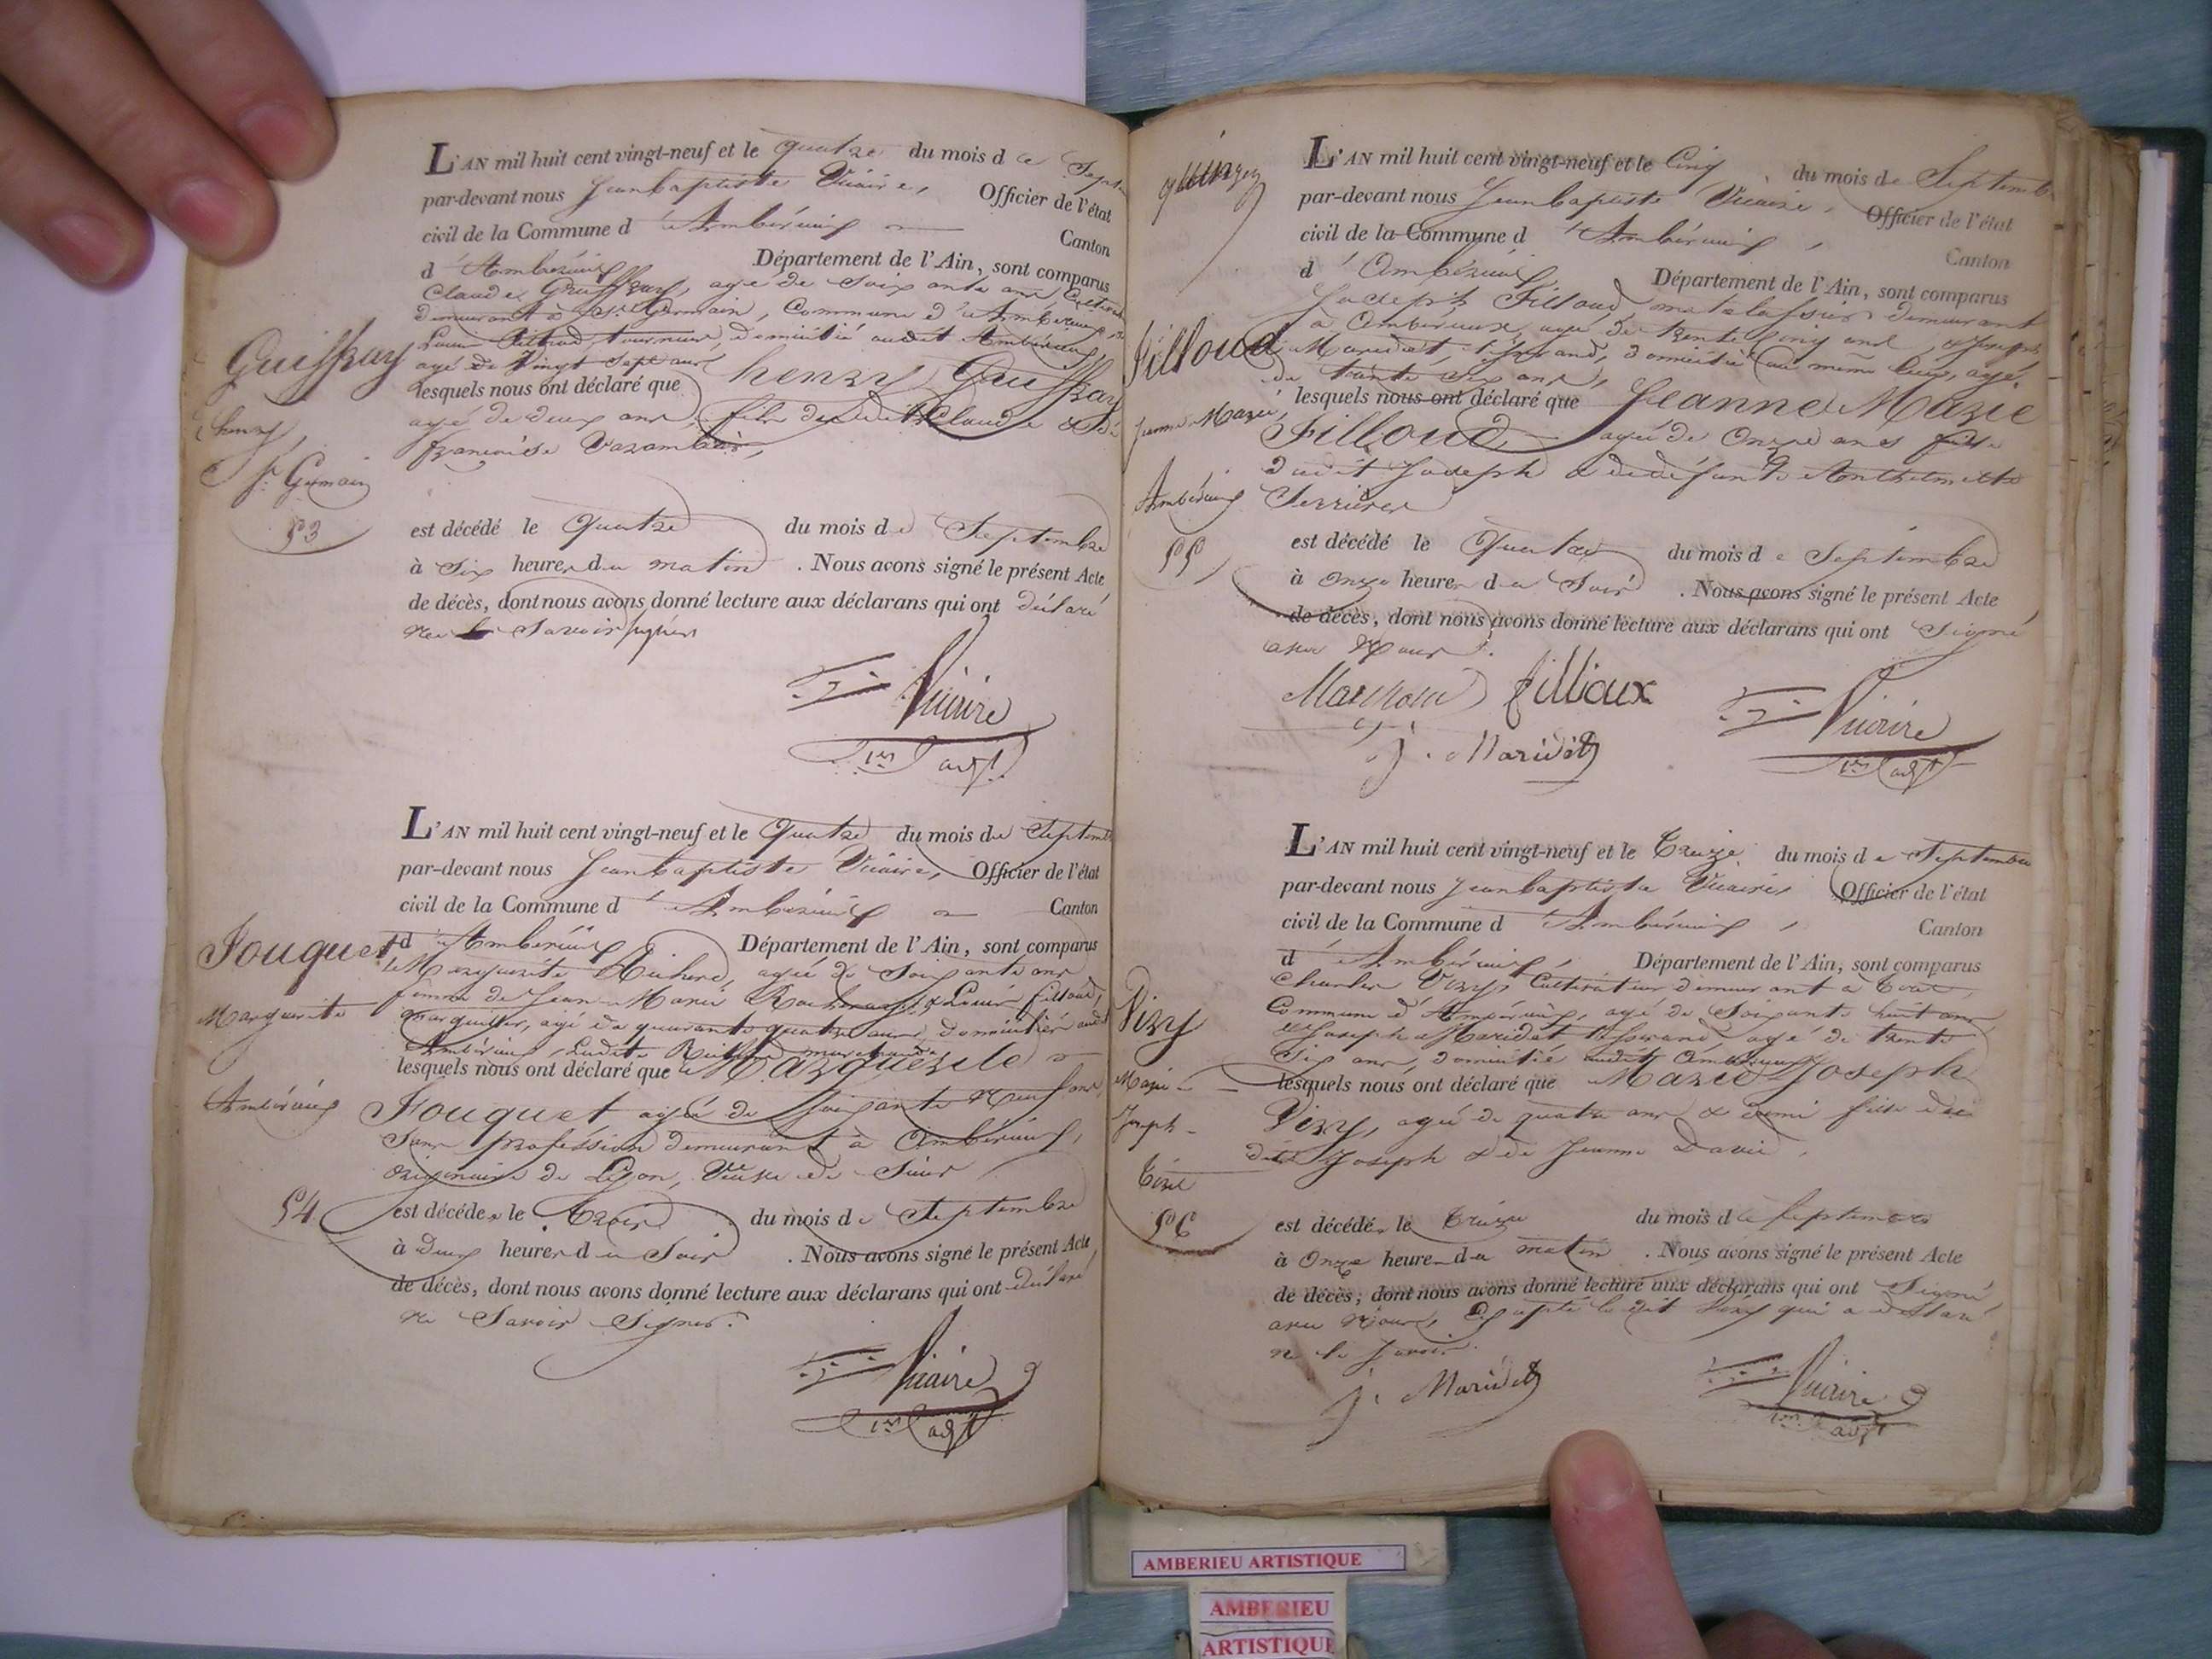 L'AN mil huit cent vingt-neuf et le quatre du mois de Sept
par-devant nous Jean baptiste Vicaire, Officier de l'état
civil de la Commune d'Ambérieux Canton
d'Ambérieux Département de l'Ain, sont comparus
Claude Guiffray, agé de Soixante ans, Cultiv
demeurant à St Germain, Commune d'Ambérieux, &
Louis Filloud, tourneur, domicilié audit Ambérieux,
agé de Vingt Sept ans
lesquels nous ont déclaré que henry Guiffray
agé de deux ans, fils dudit Claude & de
françoise
Guiffray
henry,
St Germain
53
est décédé le Quatre du mois de Septembre
à Six heures du matin . Nous avons signé le présent Acte
de décès, dont nous avons donné lecture aux déclarans qui ont déclaré
ne le Savoir
Vicaire
1er adjt
L'AN mil huit cent vingt-neuf et le Quatre du mois de Septemb
par-devant nous Jean baptiste Vicaire, Officier de l'état
civil de la Commune d'Ambérieux Canton
d'Ambérieux Département de l'Ain, sont comparus
Marguerite Richerd, agée de Soixante ans
femme de Jean Marie & Louis filloud,
marguiller, agé de quarante quatre ans, domiciliés audit
Ambérieux, Ladite marchande
lesquels nous ont déclaré que Marguerite
Fouquet agée de Soixante Neuf ans,
Sans profession demeurant à Ambérieux,
originaire de Lyon, Veuve de Sieur
Fouquet
Marguerite
Ambérieux
54
est décédée le Trois du mois de Septembre
à Deux heures du Soir . Nous avons signé le présent Acte
de décès, dont nous avons donné lecture aux déclarans qui ont déclaré
ne Savoir Signer.
Vicaire
1er adjt
L'AN mil huit cent vingt-neuf et le Cinq du mois de Septemb
par-devant nous Jean baptiste Vicaire, Officier de l'état
civil de la Commune d'Ambérieux, Canton
d'Ambérieux Département de l'Ain, sont comparus
Joseph Filloud, matelassier demeurant
à Ambérieux, agé de trente cinq ans, & Joseph
Maridet, tisserand, domicilié au même lieu, agé
de trente six ans,
lesquels nous ont déclaré que Jeanne Marie
Filloud agée de Onze ans fille
dudit Joseph & de défunte Anthelmette
Ferrier
Filloud
Jeanne Marie,
Ambérieux
55
est décédé le Quatre du mois de Septembre
à Onze heures du Soir . Nous avons signé le présent Acte
de décès, dont nous avons donné lecture aux déclarans qui ont Signé
avec Nous.
fillioux
j. Maridet
Vicaire
1er adjt
L'AN mil huit cent vingt-neuf et le Treize du mois de Septembre
par-devant nous Jean baptiste Vicaire, Officier de l'état
civil de la Commune d'Ambérieux, Canton
d'Ambérieux, Département de l'Ain, sont comparus
Charles Vizy, Cultivateur demeurant à Tiret,
Commune d'Ambérieux, agé de Soixante huit ans
& Joseph Maridet tisserand, agé de trente
Six ans, domicilié audit Ambérieux
lesquels nous ont déclaré que Marie Joseph
Vizy, agée de quatre ans & demi fille de
Joseph & de Jeanne David.
Vizy
Marie
Joseph
Tiret
56
est décédée le Treize du mois de Septembre
à Onze heures du matin . Nous avons signé le présent Acte
de décès, dont nous avons donné lecture aux déclarans qui ont Signé
avec Nous, Excepté ledit Vizy qui a déclaré
ne le Savoir.
j. Maridet
Vicaire
1er adjt
AMBERIEU ARTISTIQUE
AMBERIEU
ARTISTIQUE